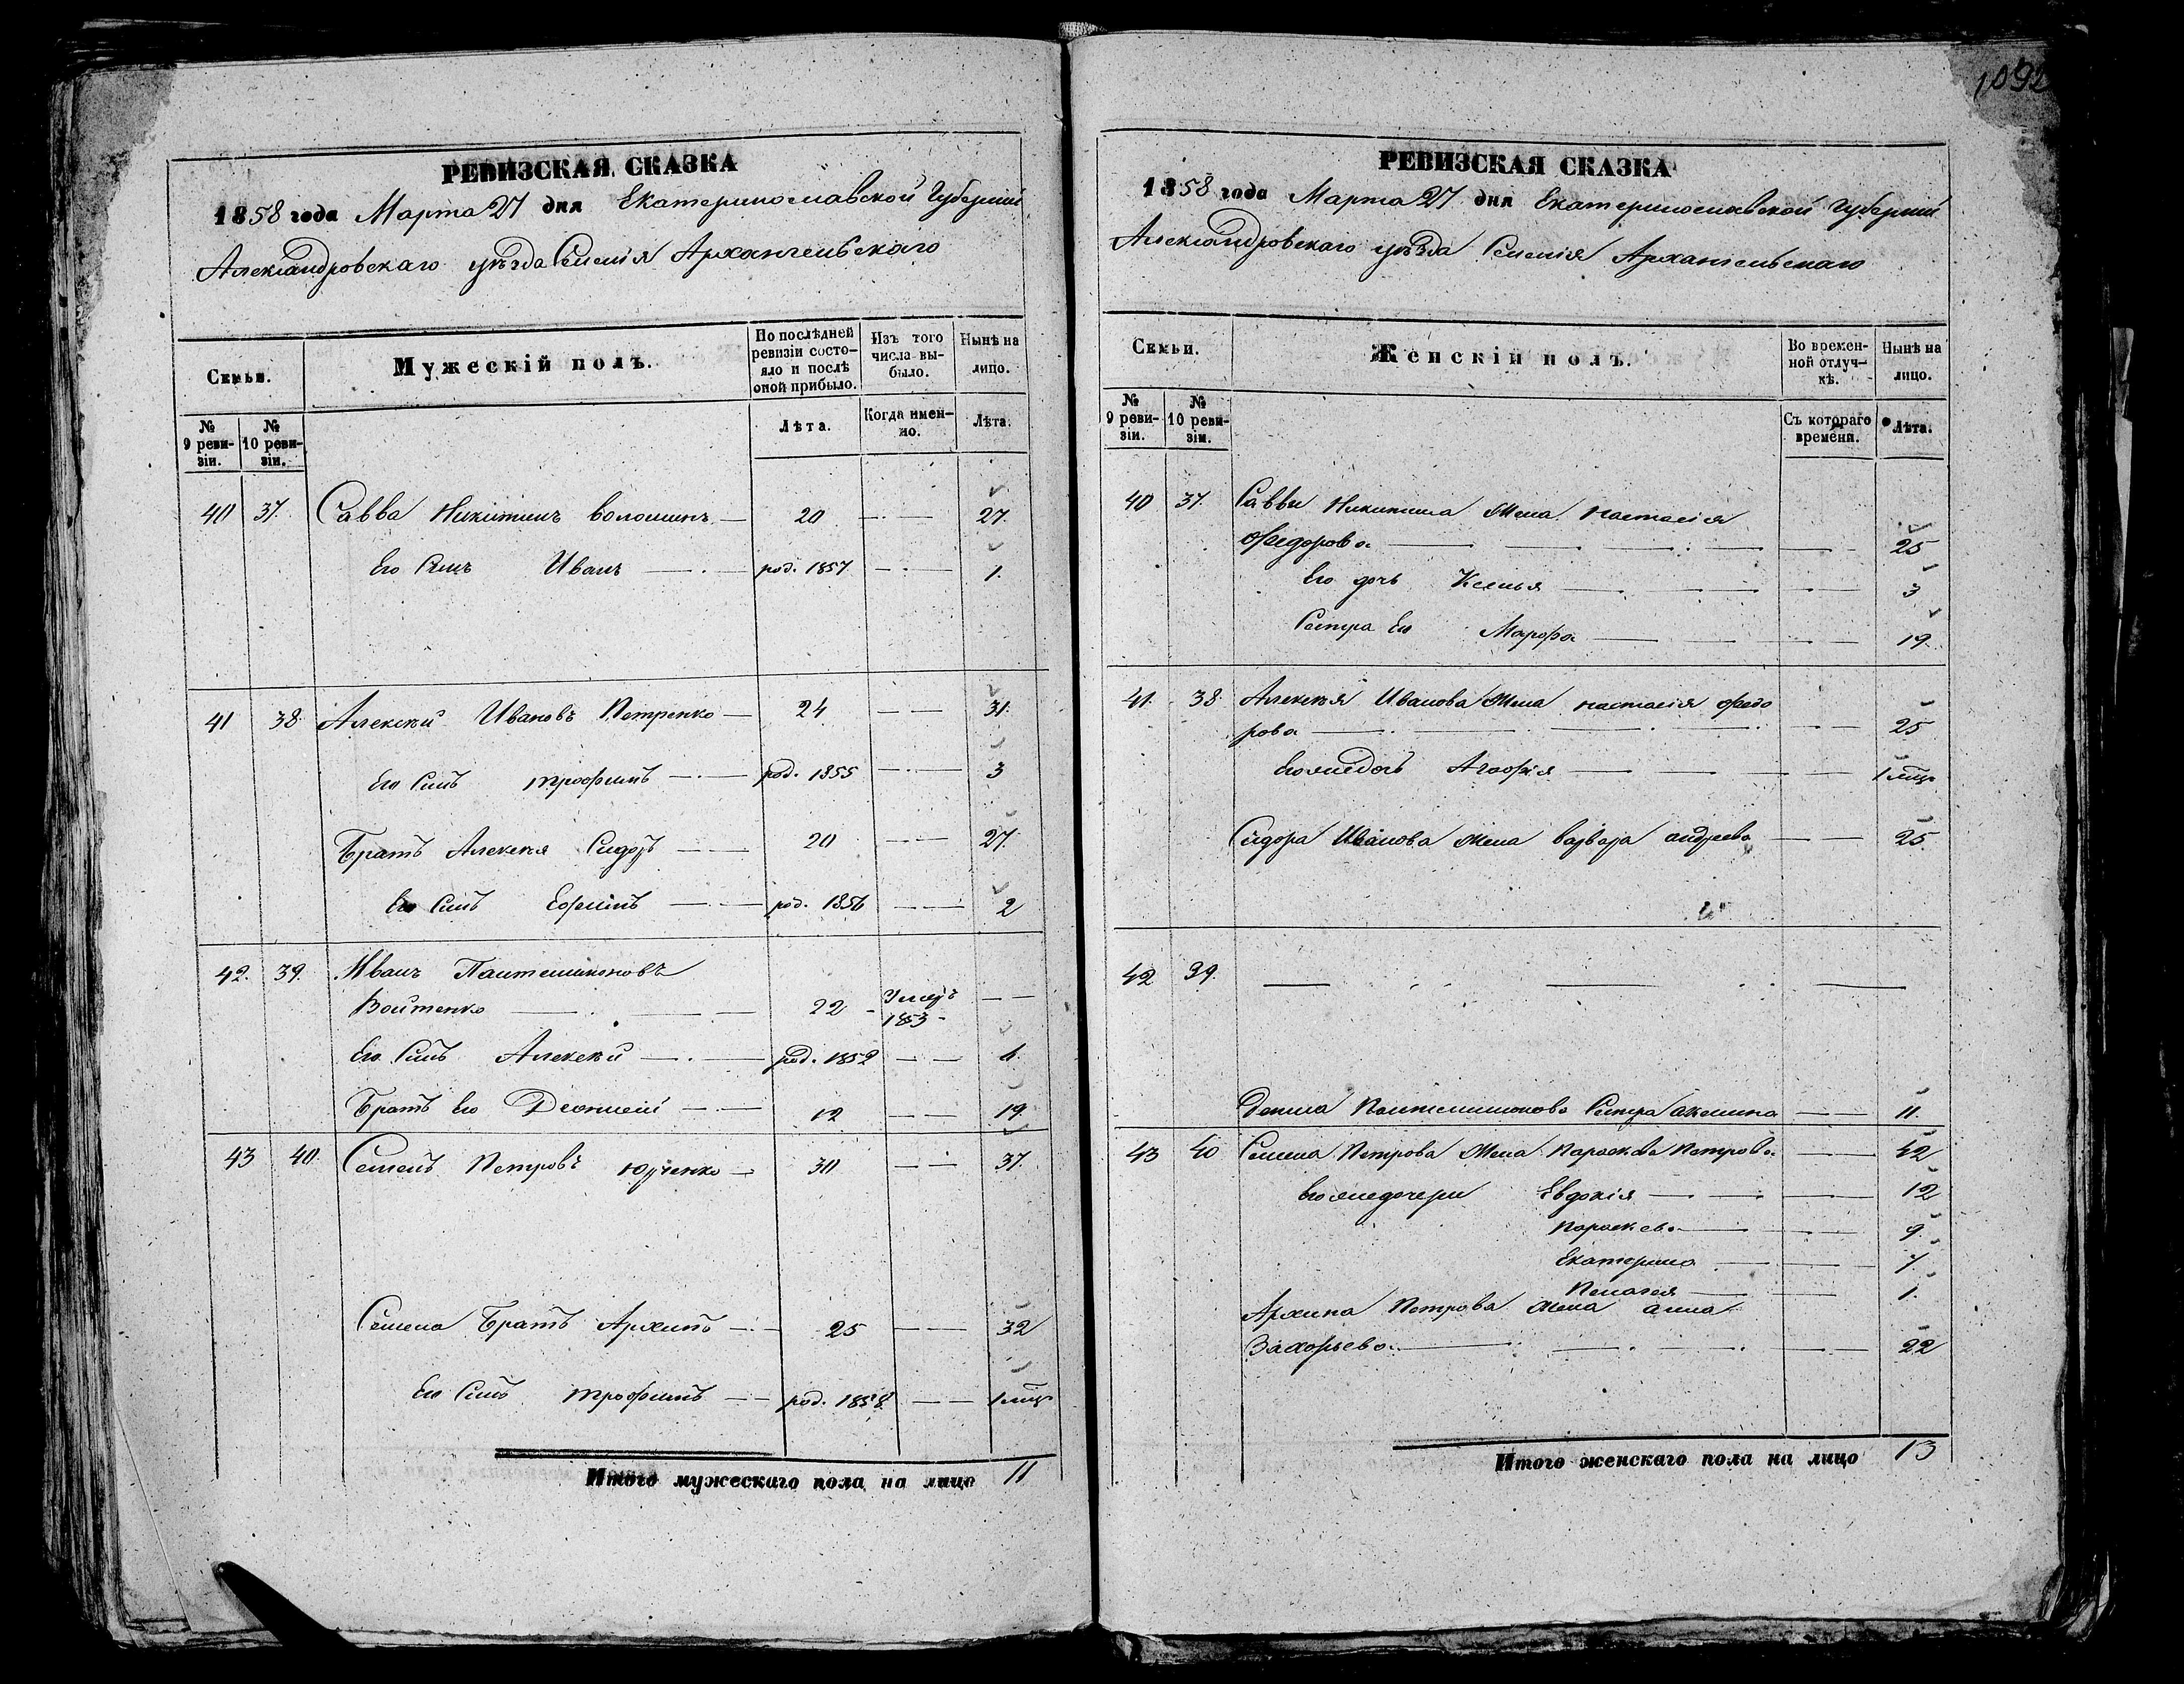 1092
РЕВИЗСКАЯ СКАЗКА
1858 года Марта 27 дня Екатеринославской Губерніи
Александровскаго уѣзда Селенія Архангельскаго
Семьи.
Мужескій полъ.
По послѣдней ревизіи состояло и послѣ оной прибыло.
Изъ того числа выбыло.
Нынѣ на лицо.
№ 9 ревизіи.
№ 10 ревизіи.
Лѣта.
Когда именно.
Лѣта.
40 37. Савва Никитинъ Волошинъ — 20 — — 27.
Его Сынъ Иванъ — род. 1857 — — 1.
41 38 Алексѣй Ивановъ Петренко — 24 — — 31.
Его Сынъ Трофимъ — род. 1855 — — 3
Братъ Алексѣя Сидоръ — 20 — — 27.
Его Сынъ Ефимъ — род. 1856 — — 2
42. 39. Иванъ Пантелимоновъ
Войтенко — 22 - Умеръ 1853 - — —
Его Сынъ Алексѣй — род. 1852 — —
Братъ Его — 12 — — 19.
43 40. Семенъ Петровъ Юрченко — 30 — — 37.
Семена Братъ Архипъ — 25 — — 32
Его Сынъ Трофимъ — род. 1858 — — 1 мѣц
Итого мужескаго пола на лицо 11
РЕВИЗСКАЯ СКАЗКА
1858 года Марта 27 дня Екатеринославской Губерніи
Александровскаго уѣзда Селенія Архангельскаго
Семьи.
Женскій полъ.
Во временной отлучкѣ.
Нынѣ на лицо.
№ 9 ревизіи.
№ 10 ревизіи.
Съ котораго времени.
Лѣта.
40 37. Саввы Никитина Жена Настасія
Федорова — — 25
Его дочь Ксенья — — 3
Сестра Его Марфа — — 19.
41. 38. Алексѣя Иванова Жена настасія Федо
рова — — 25
Егожедочь Агафія — — 1 мѣц
Сидора Иванова Жена варвара андреева — — 25.
42 39. — — —
Пантелимонова Сестра акилина — — 11.
43 40 Семена Петрова Жена Параскева Петрова — — 42
Егожедочери Евдокія — — 12
Параскева — — 9.
Екатерина — — 7
Пелагея — — 1.
Архипа Петрова Жена анна
Захарьева — — 22
Итого женскаго пола на лицо 13